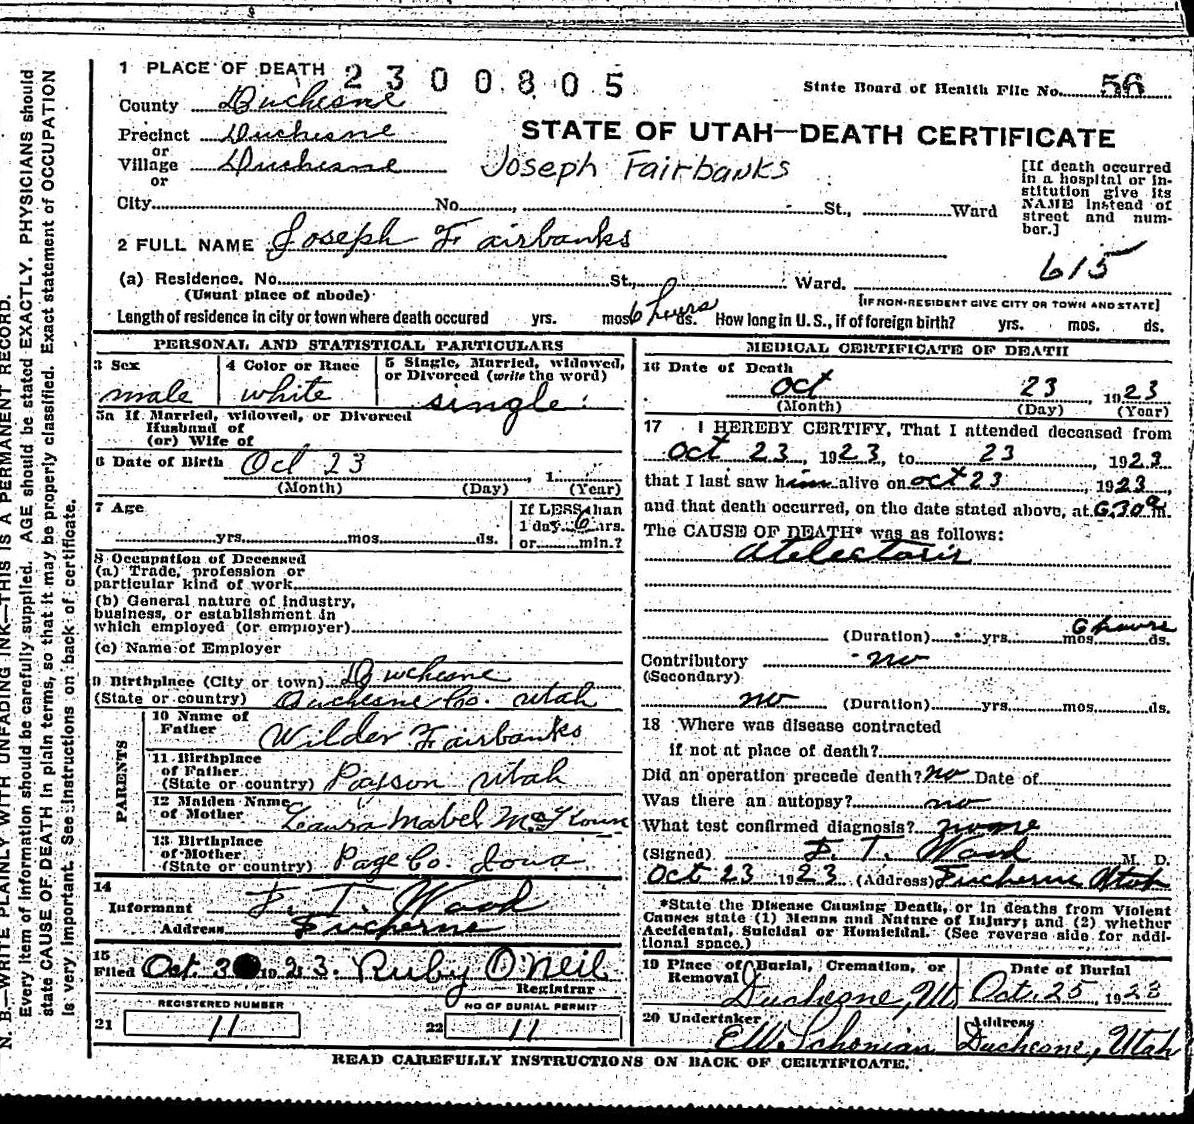 1 PLACE OF DEATH 2300805
State Board of Health File No. 56
County Duchesne
Precinct Duchesne
or
Village Duchesne
or
STATE OF UTAH—DEATH CERTIFICATE
Joseph Fairbanks
[If death occurred in a hospital or in-
stitution give its
NAME instead of
street and num-
ber.]
City No. , St., Ward
2 FULL NAME Joseph Fairbanks
615
(a) Residence. No. St., Ward.
(Usual place of abode)
[IF NON-RESIDENT GIVE CITY OR TOWN AND STATE]
Length of residence in city or town where death occured yrs. mos. 6 hours ds. How long in U. S., if of foreign birth? yrs. mos. ds.
PERSONAL AND STATISTICAL PARTICULARS
3 Sex
male
4 Color or Race
white
5 Single, Married, widowed,
or Divorced (write the word)
single
5a If Married, widowed, or Divorced
Husband of
(or) Wife of
6 Date of Birth Oct 23 , 1
(Month) (Day) (Year)
7 Age
yrs. mos. ds.
If LESS than
1 day 6 hrs.
or min.?
8 Occupation of Deceased
(a) Trade, profession or
particular kind of work
(b) General nature of industry,
business, or establishment in
which employed (or employer)
(c) Name of Employer
9 Birthplace (City or town) Duchesne
(State or country) Duchesne Co. Utah
PARENTS
10 Name of
Father Wilder Fairbanks
11 Birthplace
of Father
(State or country) Payson Utah
12 Maiden Name
of Mother Laura Mabel
13 Birthplace
of Mother
(State or country) Page Co. Iowa
14
Informant F. T. Wood
Address Duchesne
15
Filed Oct. 30 1923. Ruby O'Neil
Registrar
REGISTERED NUMBER
21 11
NO OF BURIAL PERMIT
22 11
MEDICAL CERTIFICATE OF DEATH
16 Date of Death
Oct 23, 1923
(Month) (Day) (Year)
17 I HEREBY CERTIFY, That I attended deceased from
Oct 23, 1923, to 23, 1923
that I last saw him alive on oct 23, 1923,
and that death occurred, on the date stated above, at 6.30 a m.
The CAUSE OF DEATH* was as follows:
Atelectasis
6 hours
(Duration) yrs. mos. ds.
Contributory no
(Secondary)
no (Duration) yrs. mos. ds.
18 Where was disease contracted
if not at place of death?
Did an operation precede death? no Date of
Was there an autopsy? no
What test confirmed diagnosis? none
(Signed) F. T. Wood M. D.
Oct 23 1923 (Address) Duchesne Utah
*State the Disease Causing Death, or in deaths from Violent
Causes state (1) Means and Nature of Injury; and (2) whether
Accidental, Suicidal or Homicidal. (See reverse side for addi-
tional space.)
19 Place of Burial, Cremation, or
Removal
Duchesne, Ut
Date of Burial
Oct. 25, 1923
20 Undertaker
E W Schonian
Address
Duchesne, Utah
READ CAREFULLY INSTRUCTIONS ON BACK OF CERTIFICATE.
N. B.—WRITE PLAINLY WITH UNFADING INK—THIS IS A PERMANENT RECORD.
Every item of information should be carefully supplied. AGE should be stated EXACTLY. PHYSICIANS should
state CAUSE OF DEATH in plain terms, so that it may be properly classified. Exact statement of OCCUPATION
is very important. See instructions on back of certificate.